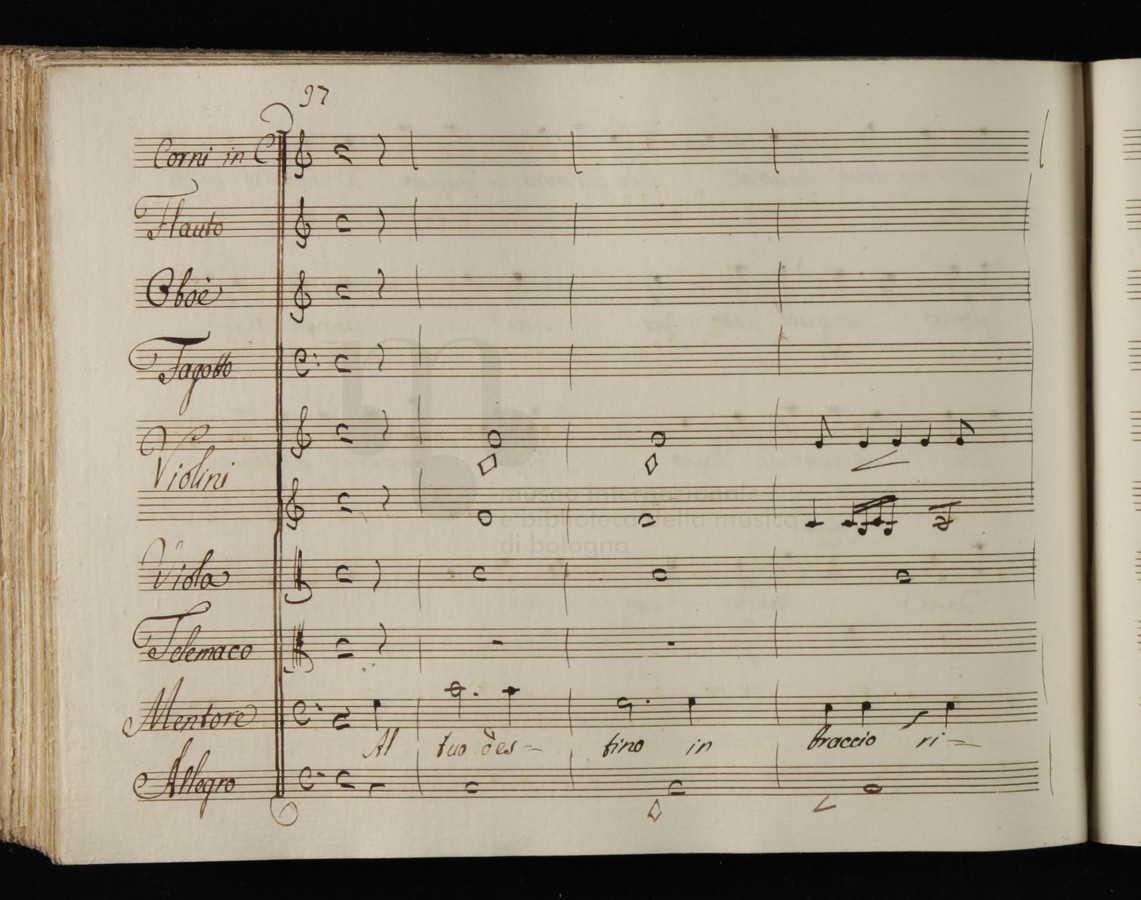 97
Corni in C
Flauto
Oboè
Fagotto
Violini
Viola
Telemaco
Mentore
Al tuo des= tino in braccio ri=
Allegro
museo internazionale
e biblioteca della musica
di bologna